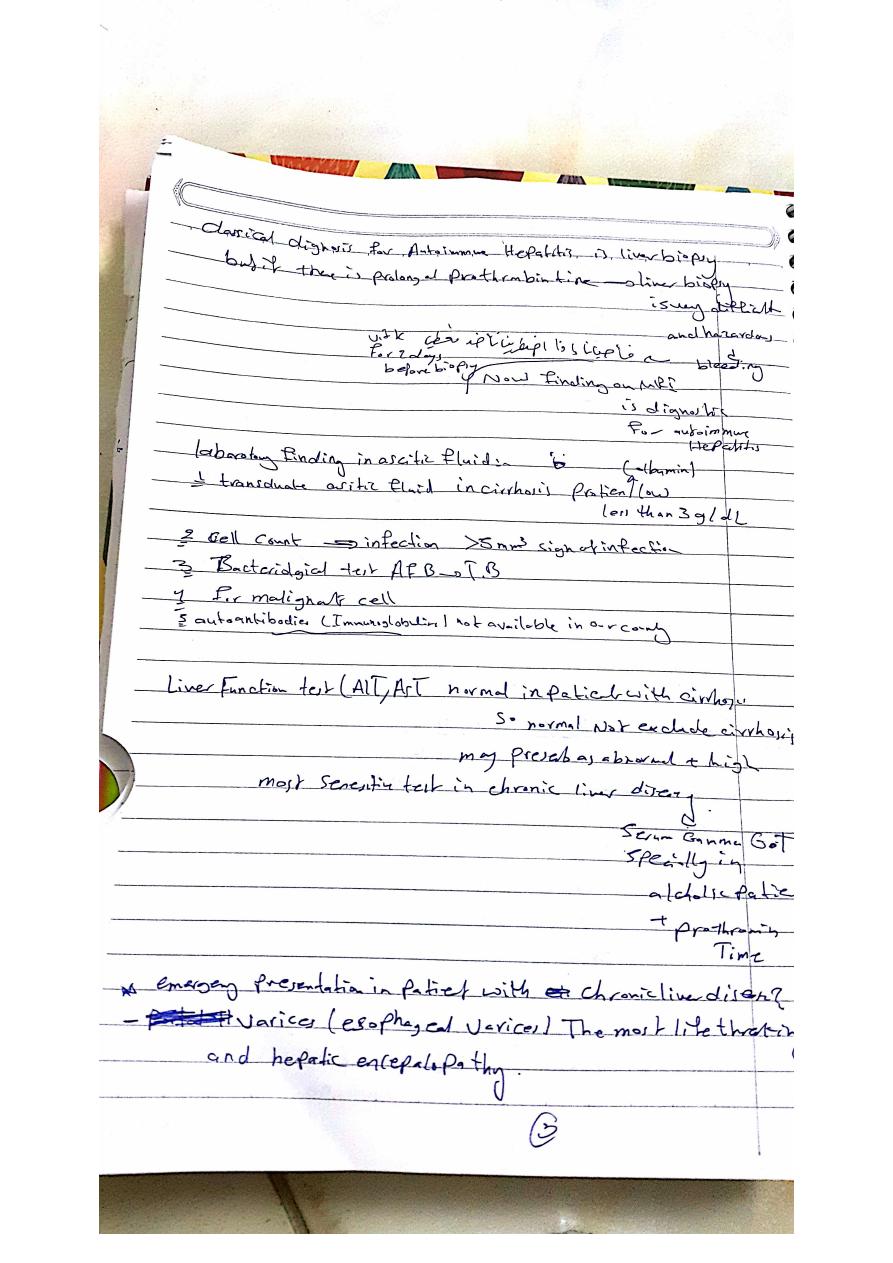 Classical dignosis for Autoimmune Hepatitis is liver biopsy
but if there is prolonged prothrombin time → liver biopsy
is very difficult
and hazardous
bleeding
vit k
for 2 days
before biopsy
Now finding on MRI
is diagnostic
for autoimmune
Hepatitis
laboratory finding in ascitic fluid :-
(albumin)
1 transduate asitic fluid in cirrhosis protien low
less than 3 g/dL
2 Cell count → infection >5mm³ sign of infection
3 Bacteriolgical test AFB → T.B
4 for malignant cell
5 autoantibodies (Immunoglobulins) not available in our county
Liver Function test (AlT, AsT normal in patient with cirrhosis
So normal Not exclude cirrhosis
may present as abnormal + high
most sensitive test in chronic liver disease
Serum Gamma GoT
specially in
alcholic patie
+ prothromin
Time
* emergency presentation in patient with chronic liver disease?
- varices (esophageal varices) The most life threatin
and hepatic encepalopathy.
3